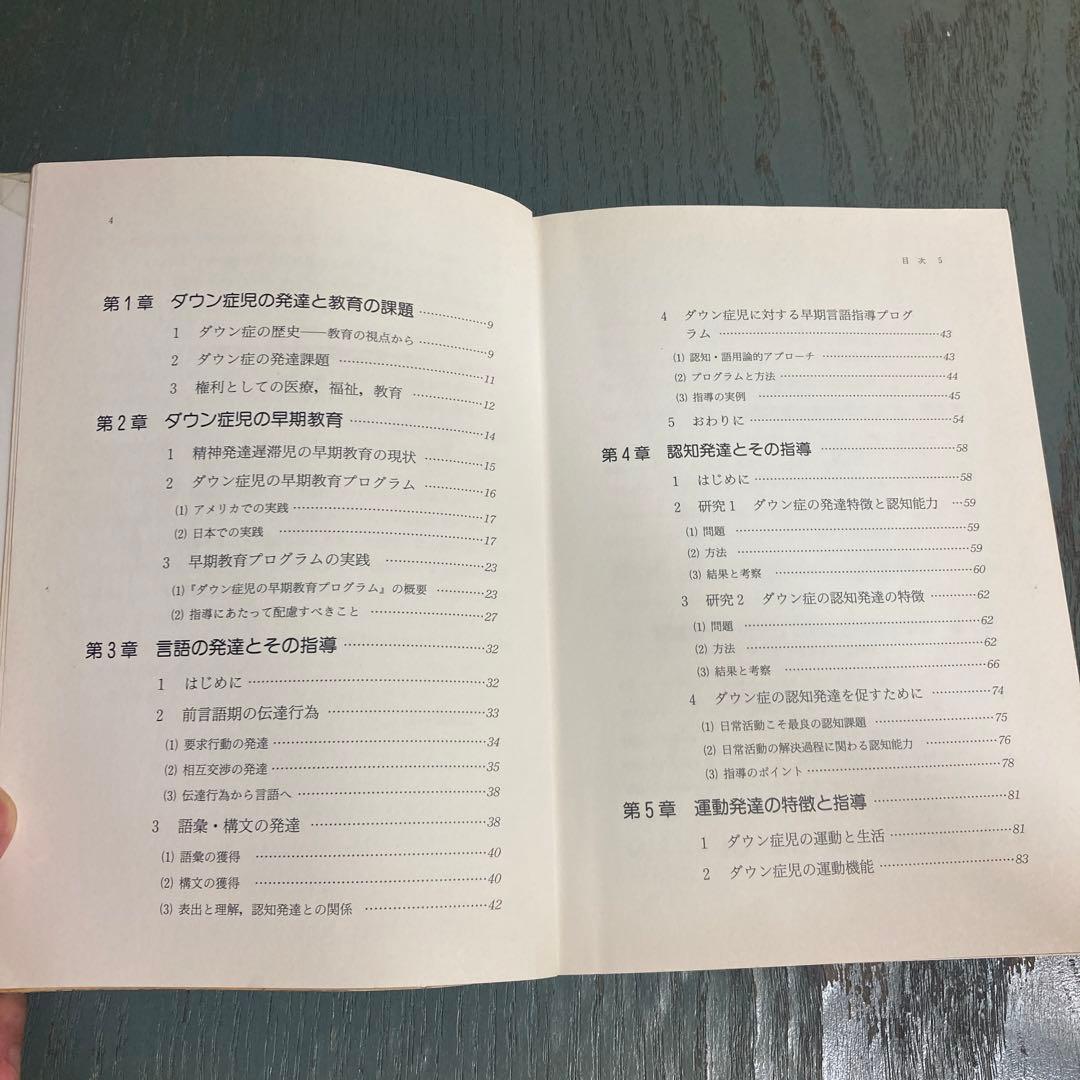 4
第1章 ダウン症児の発達と教育の課題 ……………9
1 ダウン症の歴史――教育の視点から ……………9
2 ダウン症の発達課題 ……………11
3 権利としての医療，福祉，教育 ……………12
第2章 ダウン症児の早期教育 ……………14
1 精神発達遅滞児の早期教育の現状 ……………15
2 ダウン症児の早期教育プログラム ……………16
(1) アメリカでの実践 ……………17
(2) 日本での実践 ……………17
3 早期教育プログラムの実践 ……………23
(1)『ダウン症児の早期教育プログラム』の概要 ……………23
(2) 指導にあたって配慮すべきこと ……………27
第3章 言語の発達とその指導 ……………32
1 はじめに ……………32
2 前言語期の伝達行為 ……………33
(1) 要求行動の発達 ……………34
(2) 相互交渉の発達 ……………35
(3) 伝達行為から言語へ ……………38
3 語彙・構文の発達 ……………38
(1) 語彙の獲得 ……………40
(2) 構文の獲得 ……………40
(3) 表出と理解，認知発達との関係 ……………42
目次 5
4 ダウン症児に対する早期言語指導プログ
ラム ……………43
(1) 認知・語用論的アプローチ ……………43
(2) プログラムと方法 ……………44
(3) 指導の実例 ……………45
5 おわりに ……………54
第4章 認知発達とその指導 ……………58
1 はじめに ……………58
2 研究1 ダウン症の発達特徴と認知能力 …59
(1) 問題 ……………59
(2) 方法 ……………59
(3) 結果と考察 ……………60
3 研究2 ダウン症の認知発達の特徴 ……………62
(1) 問題 ……………62
(2) 方法 ……………62
(3) 結果と考察 ……………66
4 ダウン症の認知発達を促すために ……………74
(1) 日常活動こそ最良の認知課題 ……………75
(2) 日常活動の解決過程に関わる認知能力 ……………76
(3) 指導のポイント ……………78
第5章 運動発達の特徴と指導 ……………81
1 ダウン症児の運動と生活 ……………81
2 ダウン症児の運動機能 ……………83